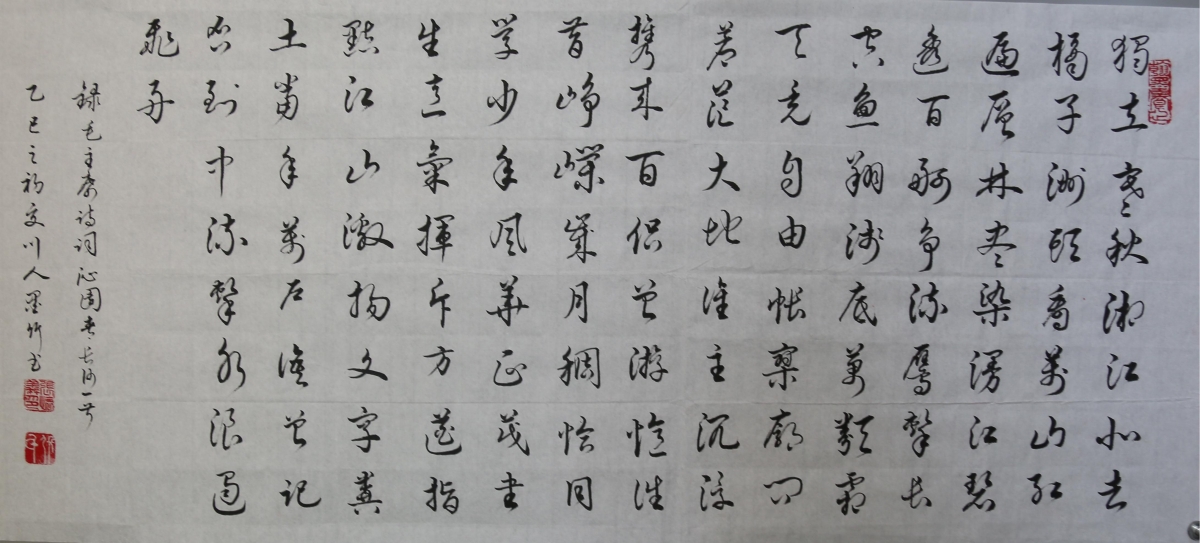 獨立寒秋湘江北去
橘子洲頭看萬山紅
遍層林尽染漫江碧
透百舸争流鹰擊长
空魚翔浅底萬類霜
天竞自由悵寥廓问
蒼茫大地谁主沉浮
携来百侣曾游憶往
昔峥嵘歲月稠恰同
学少年风華正茂书
生意氣揮斥方遒指
點江山激扬文字粪
土當年萬户侯曾记
否到中流擊水浪遏
飛舟
録毛主席诗词沁園春长沙一首
乙巳之初夏川人墨竹书